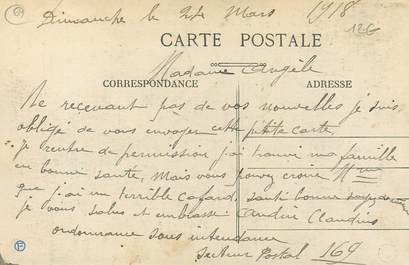 69
Dimanche le 24 Mars 1918
12€
CARTE POSTALE
Madame Angèle
CORRESPONDANCE ADRESSE
Ne recevant pas de vos nouvelles je suis
obligé de vous envoyer cette petite carte
je rentre de permission j'ai trouvé ma famille
en bonne santé, mais vous pouvez croire Mme
que j'ai un terrible cafard. santé bonne
je vous salue et embrasse Claudius
ordonnance sous intendance
Secteur Postal 169